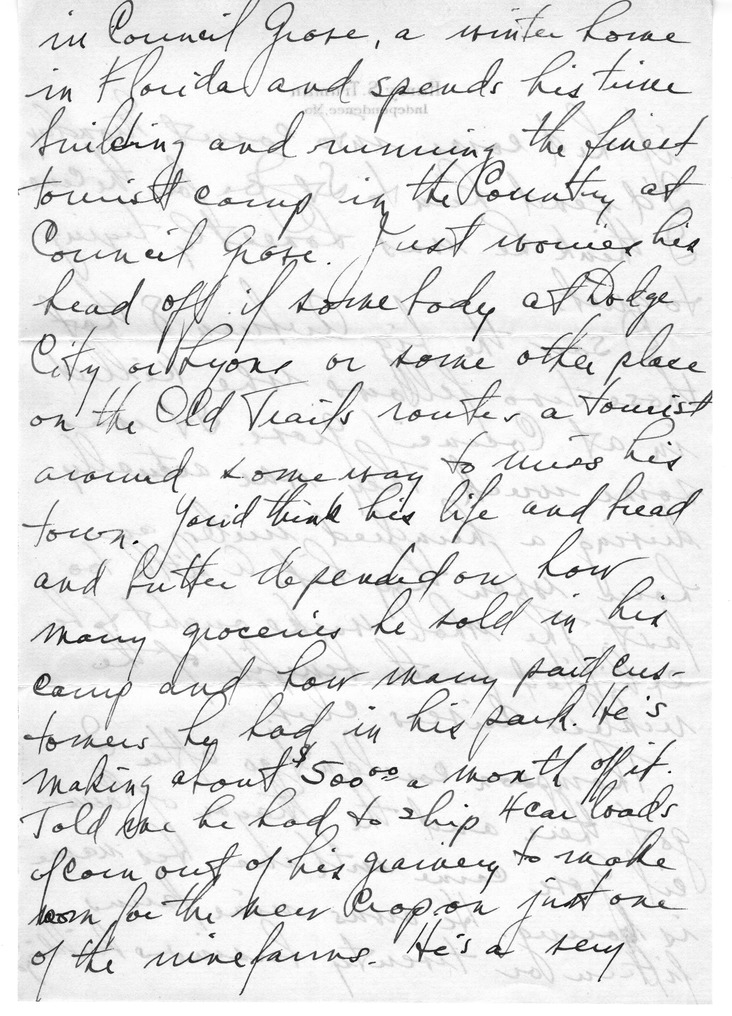 in Council Grove, a winter home
in Florida and spends his time
building and running the finest
tourist camp in the Country at
Council Grove. Just worries his
head off if somebody at Dodge
City or Lyons or some other place
on the Old Trails routes a tourist
around some way to miss his
town. You'd think his life and bread
and butter depended on how
many groceries he sold in his
camp and how many paid cus-
tomers he had in his park. He's
making about $500 00 a month off it.
Told me he had to ship 4 car loads
of corn out of his grainery to make
room for the new crop on just one
of the nine farms. He's a very